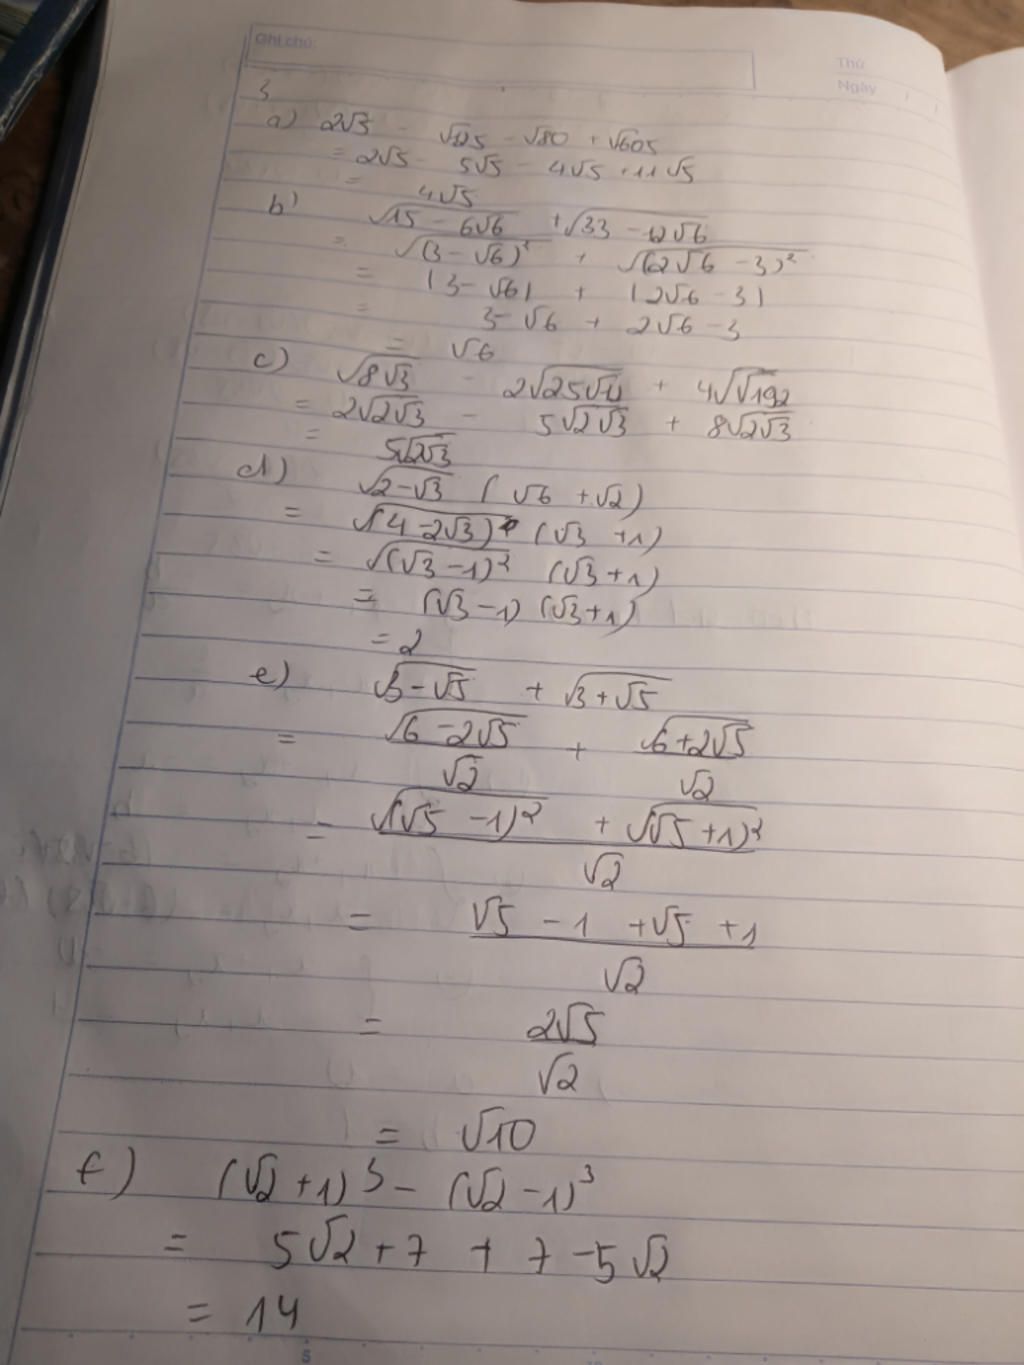 Ghi chú:
Thứ
Ngày
3
a) 2√3 - √125 - √80 + √605
= 2√5 - 5√5 - 4√5 + 11√5
= 4√5
b) √(15 - 6√6) + √(33 - 12√6)
= √((3 - √6)²) + √((2√6 - 3)²)
= |3 - √6| + |2√6 - 3|
= 3 - √6 + 2√6 - 3
= √6
c) √(8√3) - 2√(25√12) + 4√(√192)
= 2√(2√3) - 5√(2√3) + 8√(2√3)
= 5√(2√3)
d) √(2-√3) (√6 + √2)
= √(4 - 2√3) (√3 + 1)
= √((√3 - 1)²) (√3 + 1)
= (√3 - 1) (√3 + 1)
= 2
e) √(3 - √5) + √(3 + √5)
= √(6 - 2√5)/√2 + √(6 + 2√5)/√2
= (√((√5 - 1)²) + √((√5 + 1)²))/√2
= (√5 - 1 + √5 + 1)/√2
= 2√5/√2
= √10
f) (√2 + 1)³ - (√2 - 1)³
= 5√2 + 7 + 7 - 5√2
= 14
5